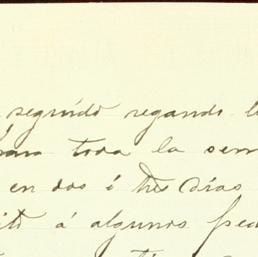 seguido regando l
para toda la sem
en dos ó tres días
á algunos